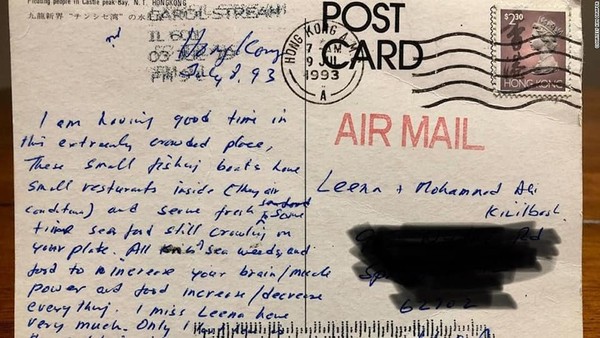 Floating people in Castle peak-Bay, N.T. HONGKONG
九龍新界
CAROL STREAM
IL 601
PM
Hong Kong
July 8, 93
POST
CARD
HONG KONG
7 AM
9 JUL
1993
A
$2.30
HONG KONG
AIR MAIL
I am having good time in
this extremely crowded place,
These small fishing boats have
small resturants inside (they air
condition) and serve fresh seafood some
time sea food still crawling on
your plate. All sea weeds and
food to increase your brain/muscle
power and food increase/decrease
everything. I miss Leena
very much. Only I
Leena + Mohammad Ali
Kizilbash.
Rd
Sp
62702